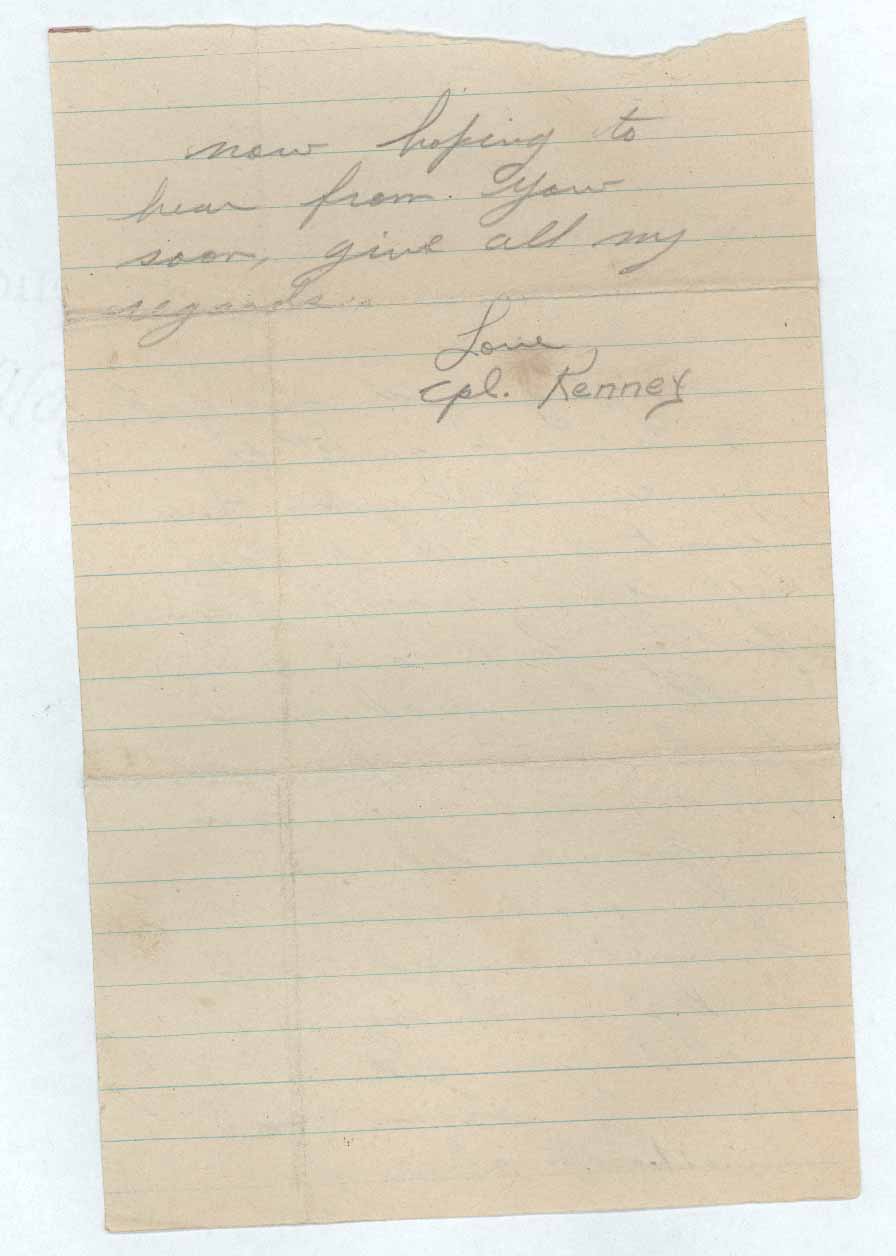 now hoping to
hear from you
soon, give all my
regards.
Love
Cpl. Kenney